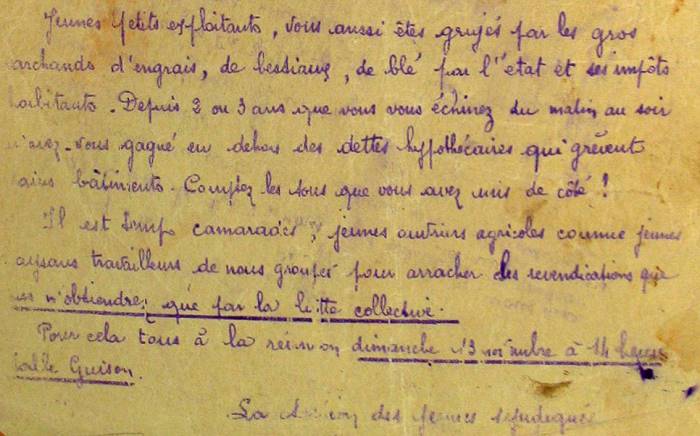 Jeunes Petits exploitants, vous aussi êtes grugés par les gros
archands d'engrais, de bestiaux, de blé par l'état et ses impôts
orbitants. Depuis 2 ou 3 ans que vous vous échinez du matin au soir
n'avez-vous gagné en dehors des dettes hypothécaires qui grèvent
bâtiments. Comptez les sous que vous avez mis de côté!
Il est temps camarades, jeunes ouvriers agricoles comme jeunes
aysans travailleurs de nous grouper pour arracher les revendications que
n'obtiendrez que par la lutte collective.
Pour cela tous à la réunion dimanche 13 novembre à 14 heures
salle Guison.
La des jeunes syndiqués